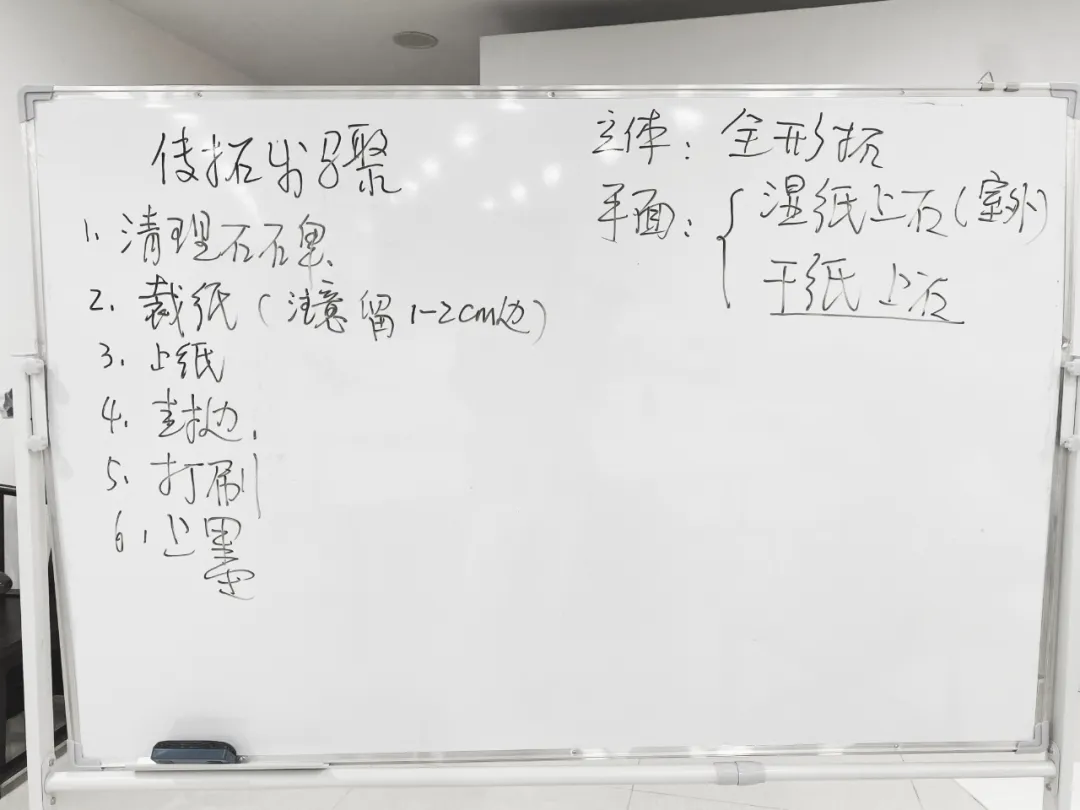 传拓步骤
1. 清理石碑.
2. 裁纸（注意留1-2cm边）
3. 上纸
4. 封边.
5. 打刷
6. 上墨
立体：全形拓
平面：{湿纸上石（室外）
干纸上石